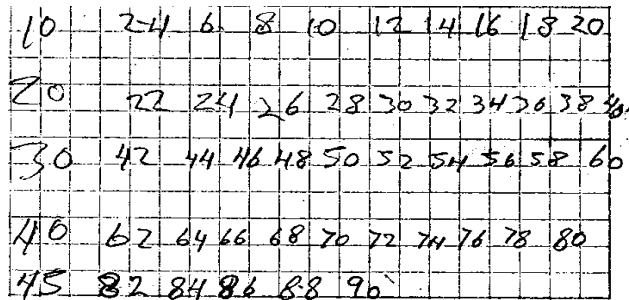 10 2 4 6 8 10 12 14 16 18 20
20 22 24 26 28 30 32 34 36 38 40
30 42 44 46 48 50 52 54 56 58 60
40 62 64 66 68 70 72 74 76 78 80
45 82 84 86 88 90